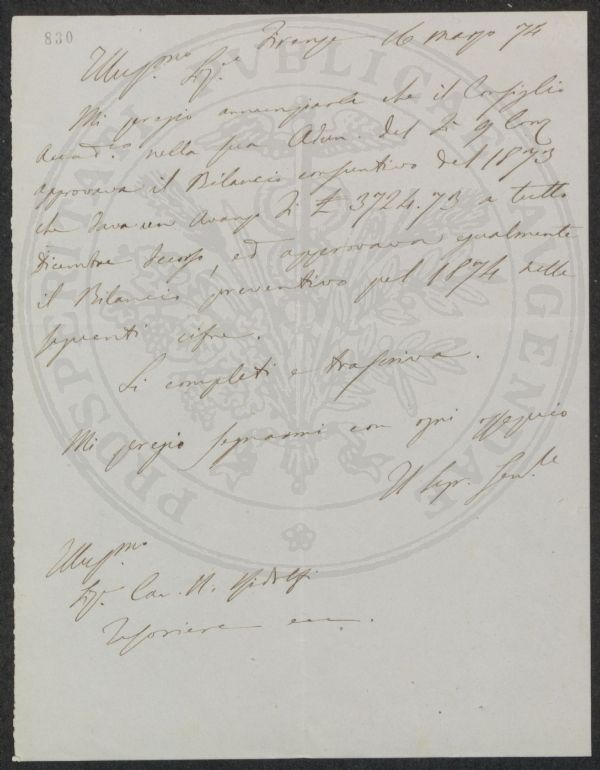 830
Firenze 16 marzo 74
Illus.mo Sig.e
Mi pregio annunziarle che il Consiglio
Accad.co nella sua Adun. del dì 9 Corr
approvava il Bilancio consuntivo del 1873
che dava un Avanzo di £ 3724.73 a tutto
Dicembre decorso, ed approvava egualmente
il Bilancio preventivo pel 1874 nelle
seguenti cifre.
Si completi e trascriva.
Mi pregio segnarmi con ogni ossequio
Il Segr. Gen.le
Illus.mo
Sig. Cav. N. Ridolfi
Tesoriere ecc.
PROSPERITATI PUBLICAE AUGENDAE